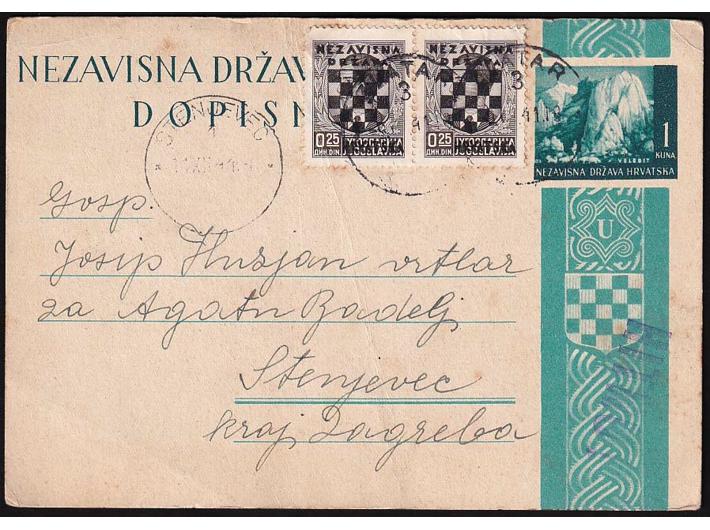 NEZAVISNA DRŽAV
DOPISN
NEZAVISNA
DRŽAVA
0.25
ДИН. DIN.
NEZAVISNA
DRŽAVA
0.25
ДИН. DIN.
1
KUNA
VELEBIT
NEZAVISNA DRŽAVA HRVATSKA
U
Gosp.
Josip Hužjan vrtlar
za Agatu Badelj
Stenjevec
kraj Zagreba